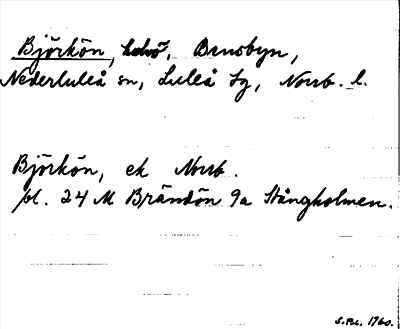 Björkön, Brusbyn,
Nederluleå sn, Luleå tg, Norrb. l.
Björkön, ek Norrb.
bl. 24 M Brändön 9a Stångholmen.
S.Pbl. 1960.